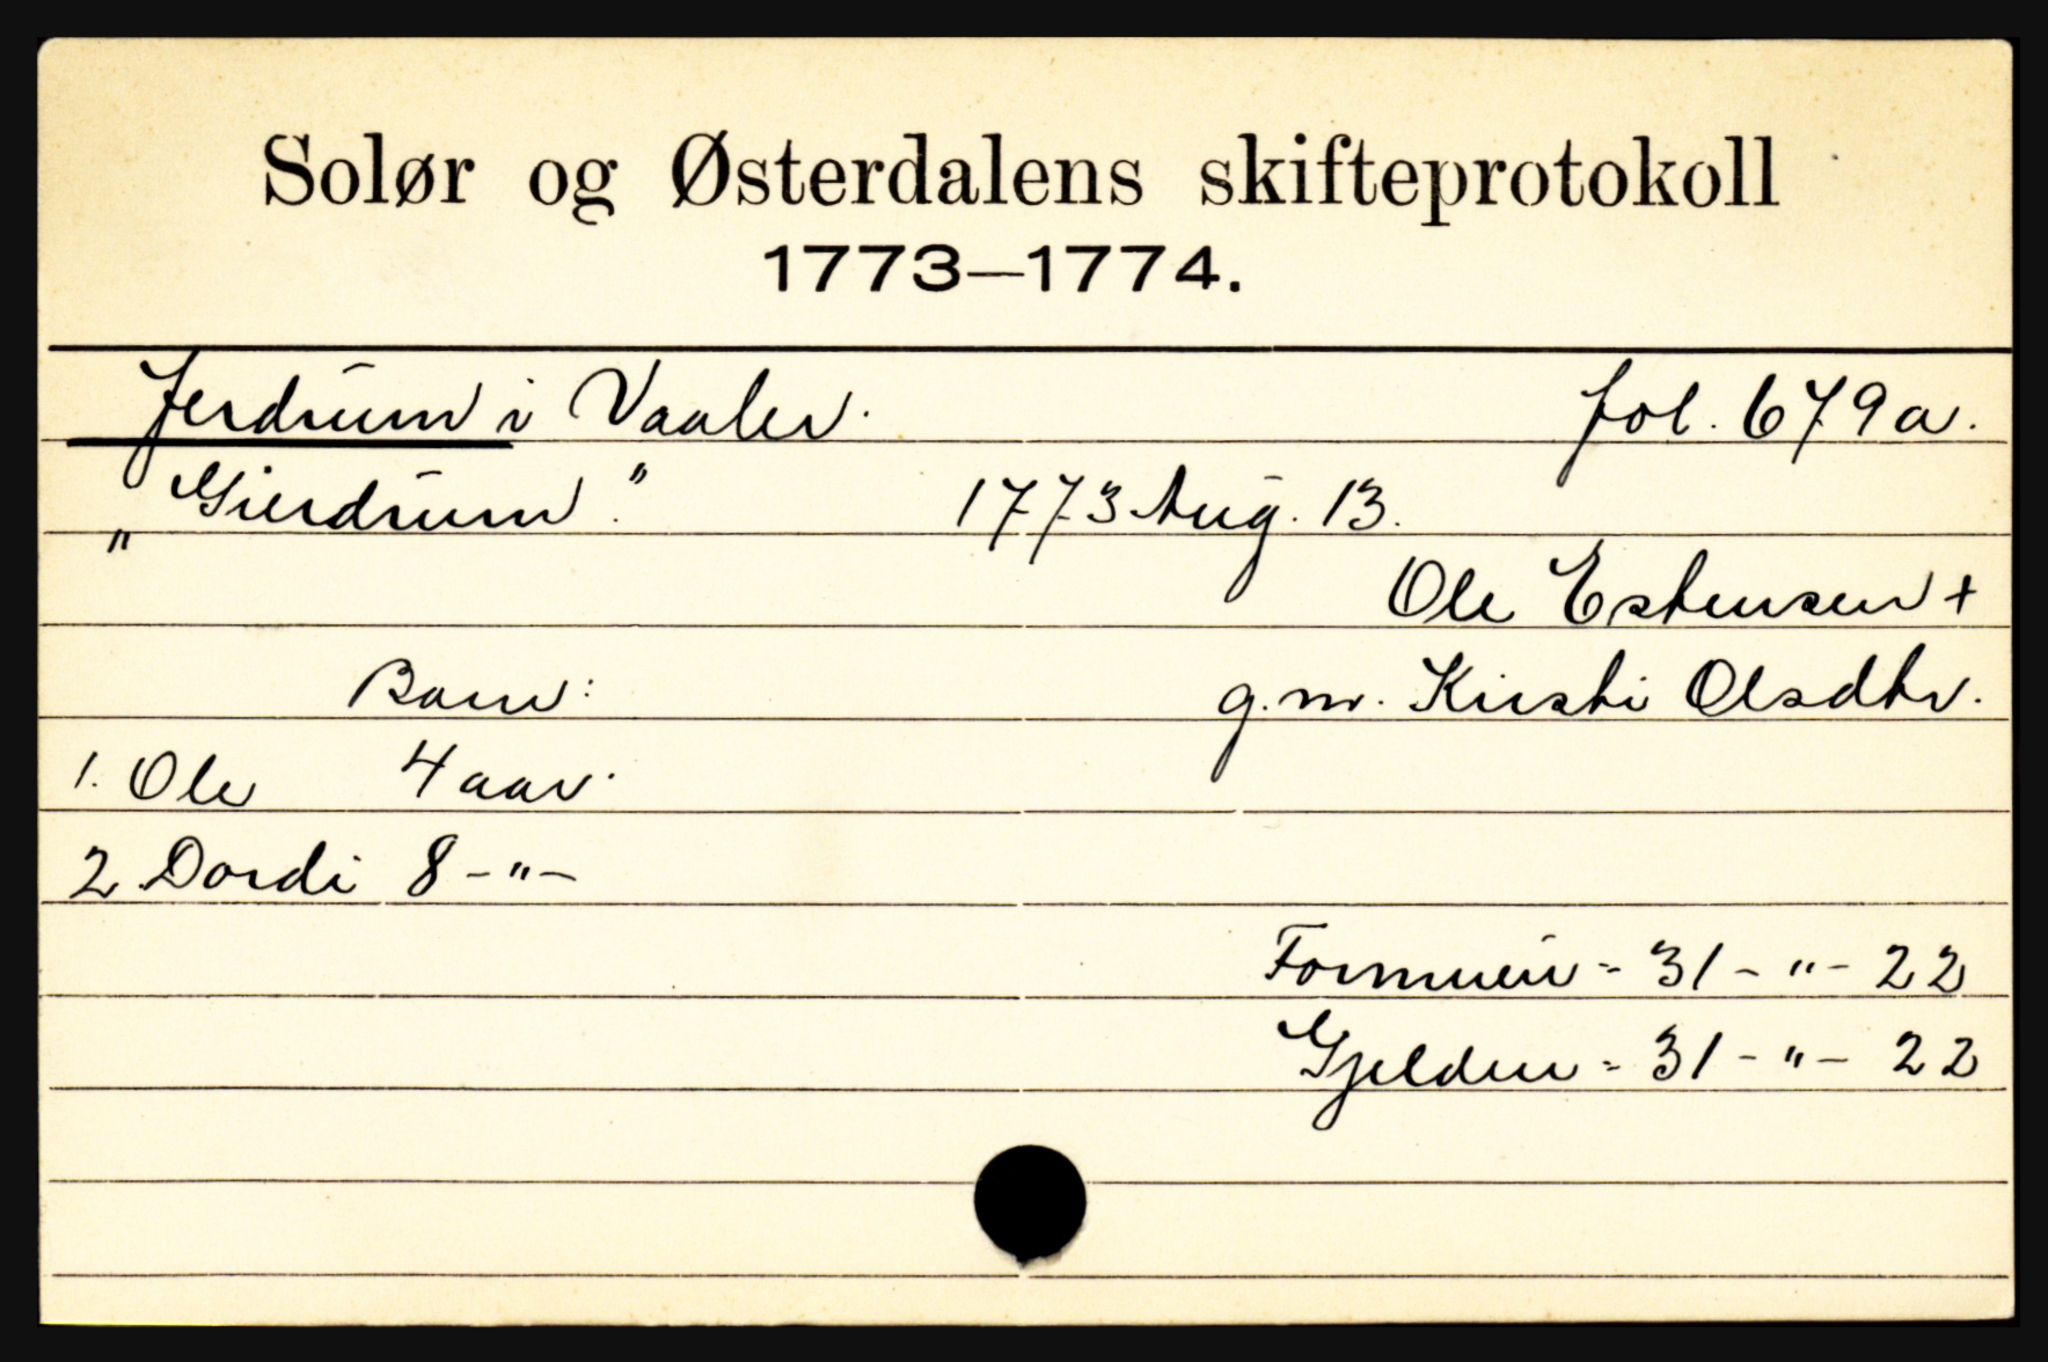 Solør og Østerdalens skifteprotokoll
1773—1774.
Jerdrum i Vaaler. fol. 679a.
„Gierdrum." 1773 Aug. 13.
Ole Estensen +
Barn: g.m. Kirsti Olsdtr.
1. Ole 4 aar.
2. Dordi 8 -"-
Formuen = 31 - " - 22
Gjelden = 31 - " - 22